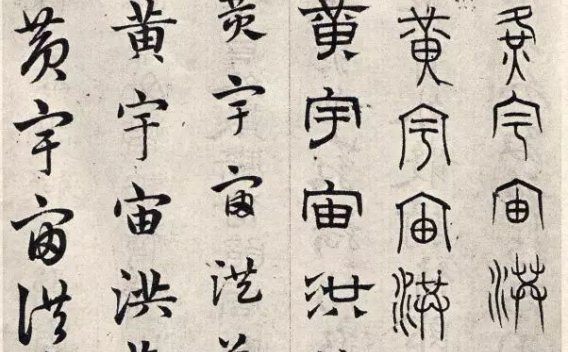 黄宇宙洪
黄宇宙洪
黄宇宙洪
黄宇宙洪
黄宇宙洪
黄宇宙洪